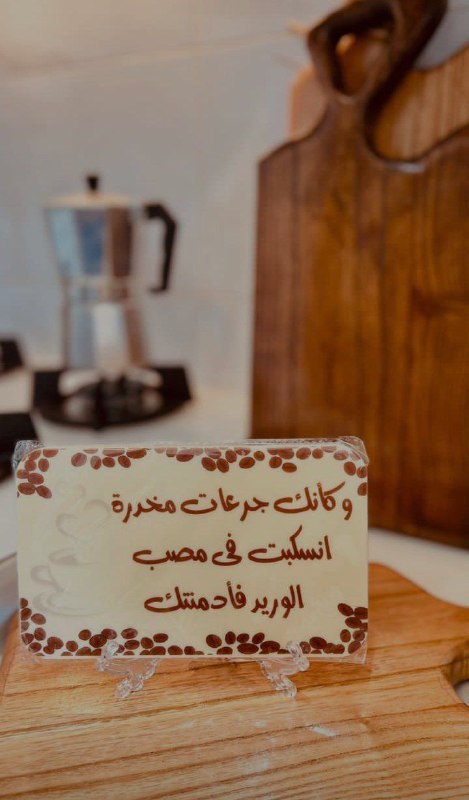 وكأنك جرعات مخدرة
انسكبت في مصب
الوريد فأدمنتك